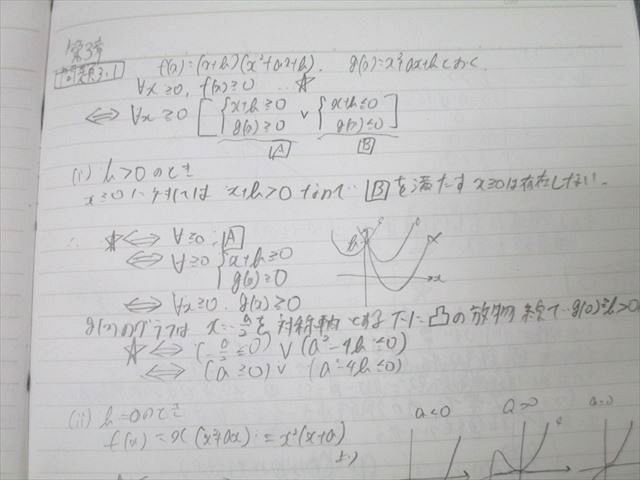 第3章
問題3.1
f(x)=(x+b)(x²+ax+b). g(x)=x²+ax+bとおく.
∀x≥0, f(x)≥0 …☆
⇔ ∀x≥0 [{x+b≥0 g(x)≥0 ∨ {x+b≤0 g(x)≤0]
A B
(i) b>0のとき
x≥0に対しては x+b>0 なので B を満たす x≥0は存在しない.
∴ ☆ ⇔ ∀≥0, A
⇔ ∀≥0 {x+b≥0
g(x)≥0
⇔ ∀x≥0. g(x)≥0
b x
g(x)のグラフは x=-a/2を対称軸とする下に凸の放物線で g(0)=b>0
☆ ⇔ (-a/2≤0) ∨ (a²-4b≤0)
⇔ (a≥0) ∨ (a²-4b≤0)
(ii) b=0のとき
f(x)=x(x²+ax)=x²(x+a)
より
a<0 a>0 a=0